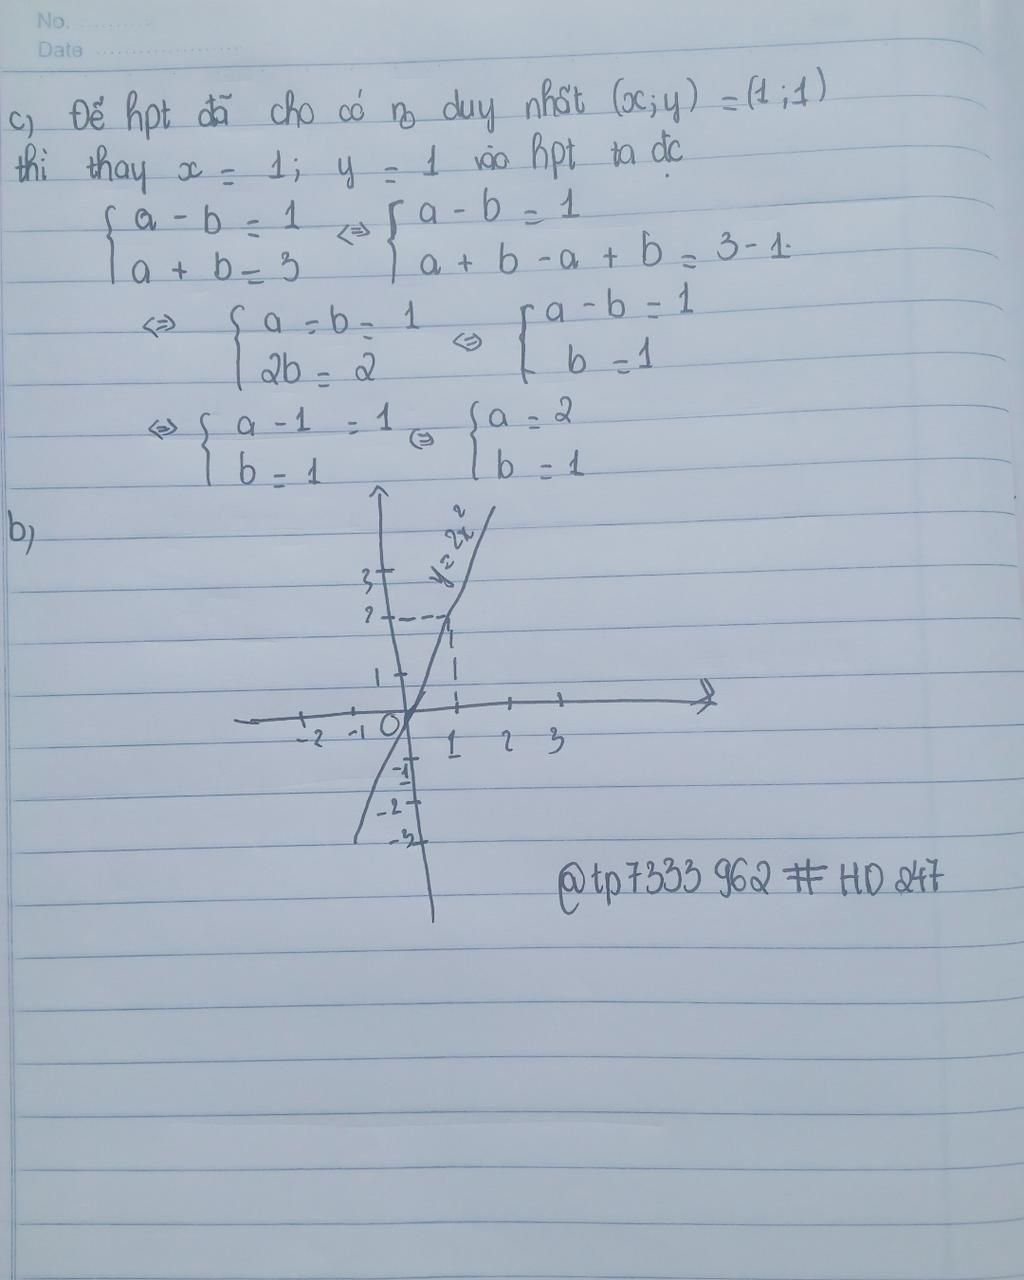 No. ............
Date ........................
c) Để hpt đã cho có no duy nhất (x;y) = (1;1)
thì thay x = 1; y = 1 vào hpt ta đc
{ a - b = 1 <=> { a - b = 1
{ a + b = 3 { a + b - a + b = 3 - 1.
<=> { a = b = 1 <=> { a - b = 1
{ 2b = 2 { b = 1
<=> { a - 1 = 1 <=> { a = 2
{ b = 1 { b = 1
b)
y = 2x²
3
2
1
-2 -1 O 1 2 3
-1
-2
-3
@tp7333962 # HD247